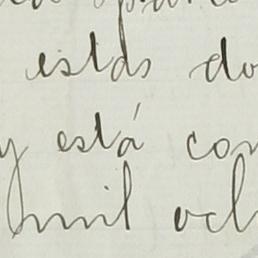 estás do
y está con
mil och